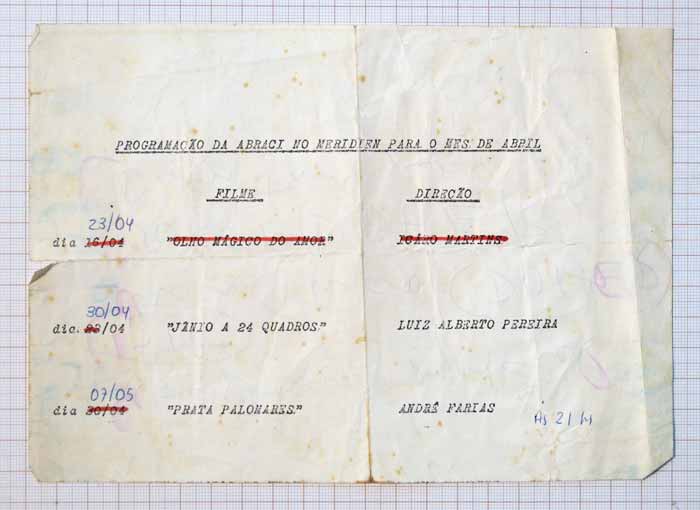 PROGRAMAÇÃO DA ABRACI NO MERIDIEN PARA O MES DE ABRIL
FILME DIREÇÃO
23/04
dia 16/04 "OLHO MÁGICO DO AMOR" ICARO MARTINS
30/04
dia. 23/04 "JÂNIO A 24 QUADROS" LUIZ ALBERTO PEREIRA
07/05
dia 30/04 "PRATA PALOMARES" ANDRÊ FARIAS
ÀS 21 H